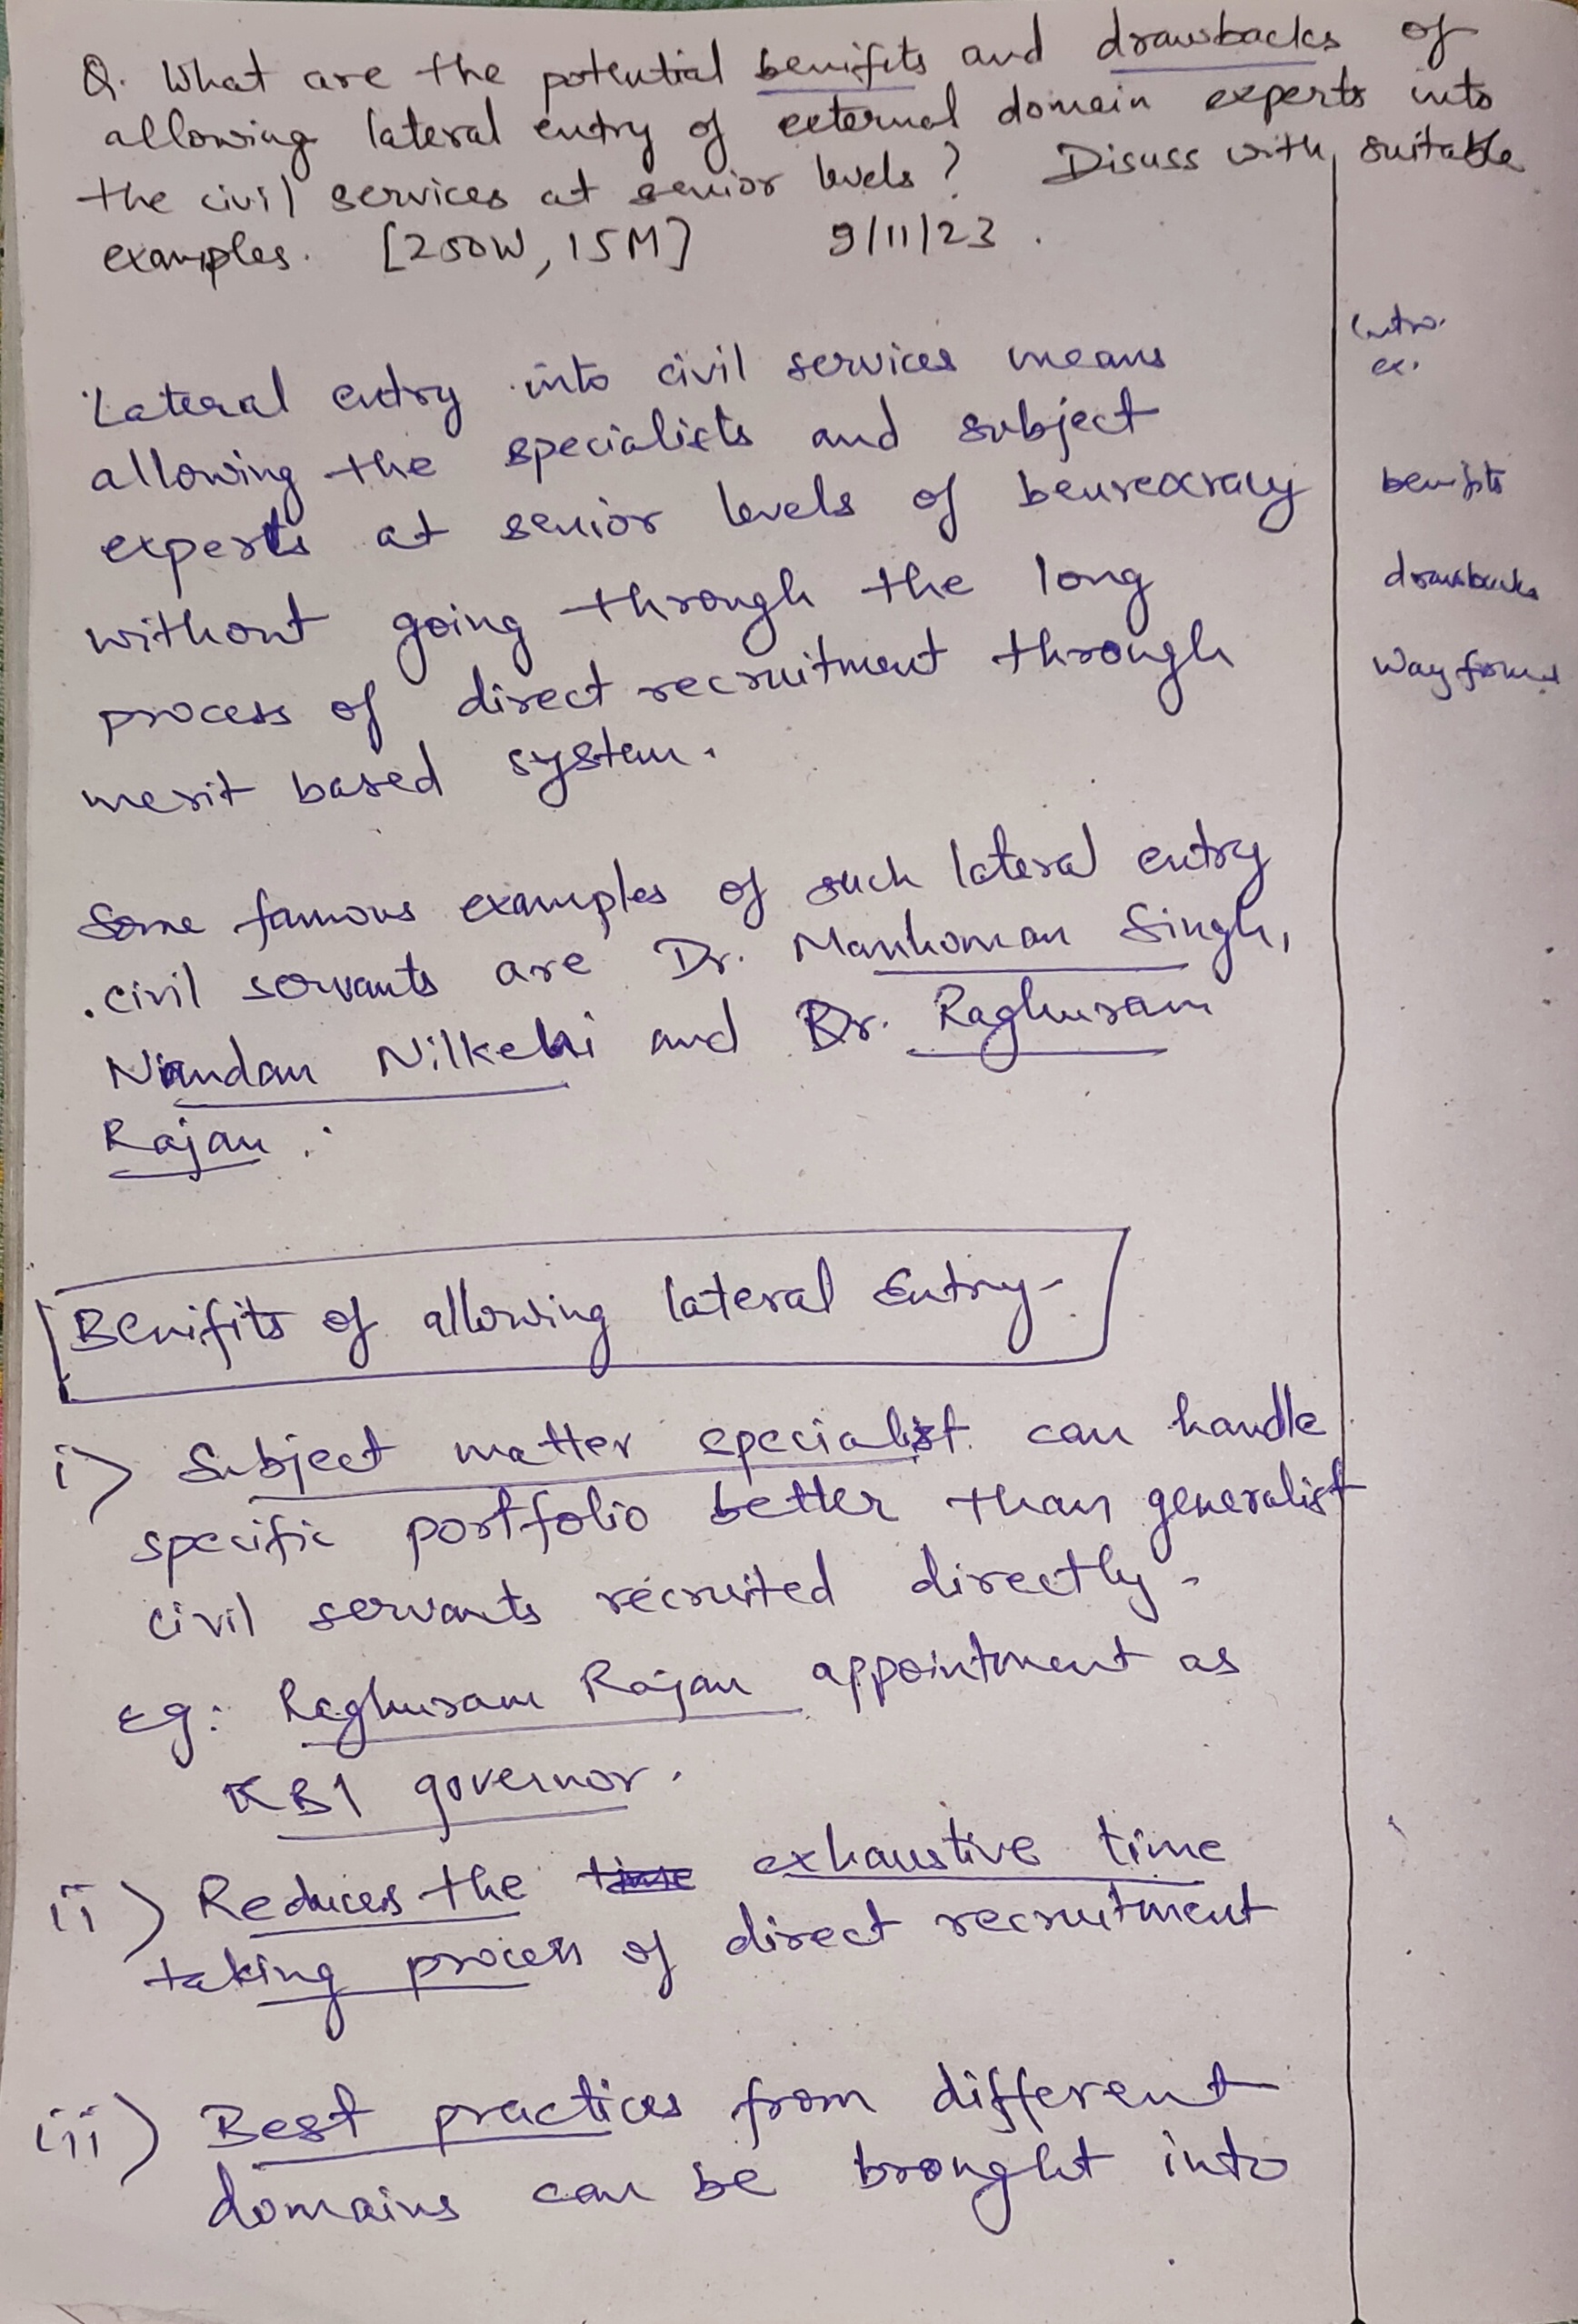 Q. What are the potential benifits and drawbacks of
allowing lateral entry of external domain experts into
the civil services at senior levels? Disuss with suitable
examples. [250W, 15M] 9/11/23.
Lateral entry into civil services means
allowing the specialists and subject
experts at senior levels of beureocracy
without going through the long
process of direct recruitment through
merit based system.
Some famous examples of such lateral entry
civil servants are Dr. Manhoman Singh,
Nandan Nilkeni and Dr. Raghuram
Rajan.
Intro.
ex.
benifits
drawbacks
Way forward
Benifits of allowing lateral Entry-
i) Subject matter specialist can handle
specific portfolio better than generalist
civil servants recruited directly.
Eg: Raghuram Rajan appointment as
RBI governor.
ii) Reduces the time exhaustive time
taking process of direct recruitment
iii) Best practices from different
domains can be brought into